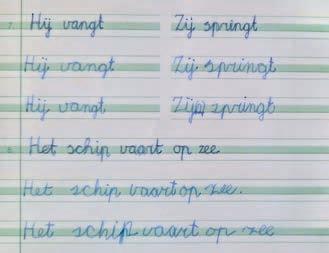 7. Hij vangt Zij springt
Hij vangt Zij springt
Hij vangt Zij springt
8. Het schip vaart op zee
Het schip vaart op zee.
Het schip vaart op zee